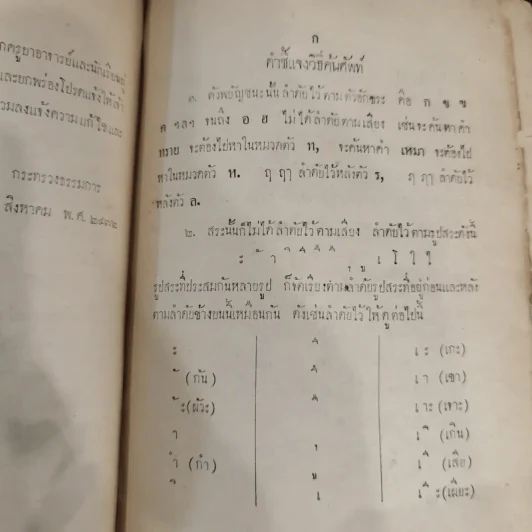 กครูบาอาจารย์และนักเรียนผู้
และยกพร่องโปรดแจ้งให้เจ้า
รวมลงแจ้งความแก้ไขและ
กระทรวงธรรมการ
สิงหาคม พ.ศ. ๒๔๗๒
ก
คำชี้แจงวิธีค้นศัพท์
๑. ตัวพยัญชนะนั้นลำดับไว้ตามตัวอักษร คือ ก ข ฃ
ค ฯลฯ จนถึง อ ฮ ไม่ได้ลำดับตามเสียง เช่นจะค้นหาคำ
ทราย จะต้องไปหาในหมวดตัว ท, จะค้นหาคำ เหมา จะต้องไป
หาในหมวดตัว ห. ฤ ฤๅ ลำดับไว้หลังตัว ร, ฦ ฦๅ ลำดับไว้
หลังตัว ล.
๒. สระนั้นก็ไม่ได้ลำดับไว้ตามเสียง ลำดับไว้ตามรูปสระดังนี้
ะ ั า ิ ี ึ ื ุ ู เ โ ใ ไ
รูปสระที่ประสมกันหลายรูป ก็จัดเรียงตามลำดับรูปสระที่อยู่ก่อนและหลัง
ตามลำดับข้างบนนี้เหมือนกัน ดังเช่นลำดับไว้ให้ดูต่อไปนี้
ะ ี เ ะ (เกะ)
ั (กัน) ึ เ า (เขา)
ั ะ (ผัวะ) ื เ าะ (เจาะ)
า เ ิ (เกิน)
ำ (กำ) ุ เ ี (เสีย)
ิ ู เ ี ะ (เผียะ)
เ